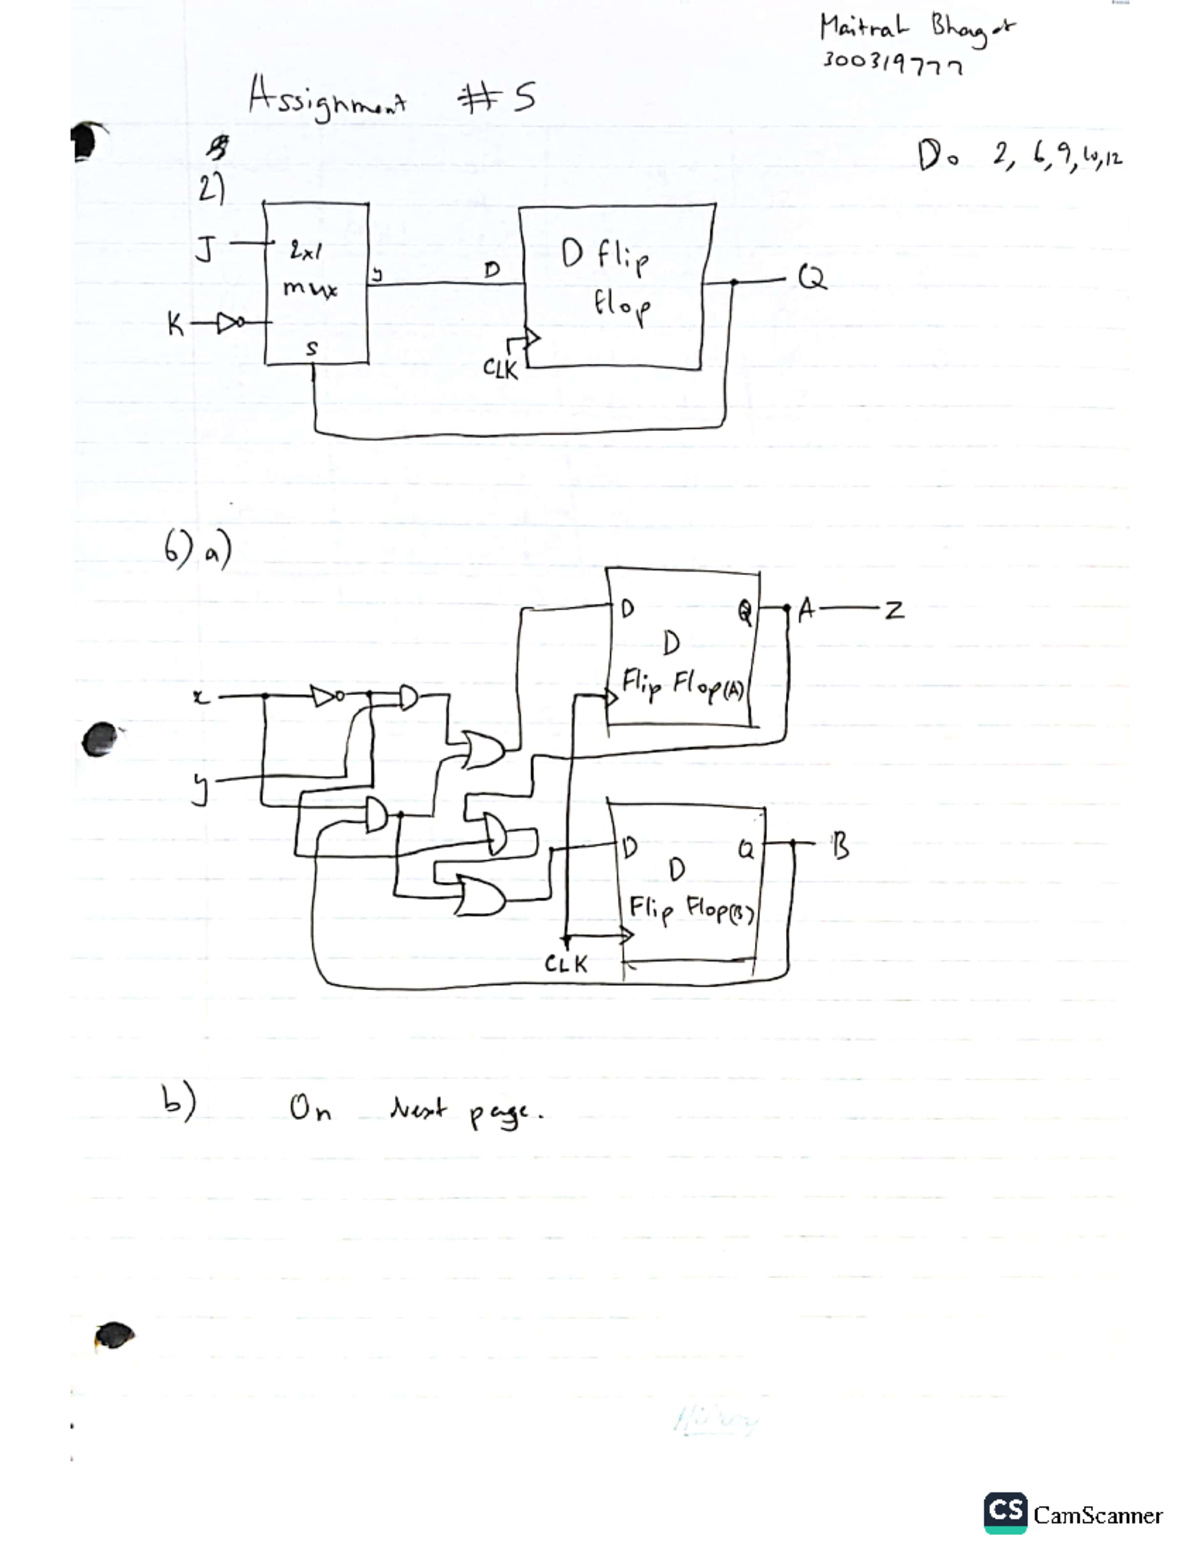 Maitrak Bhagat
300319777
Assignment #5
Do 2, 6, 9, 10, 12
2)
J
2x1
mux
y
D
D flip
flop
Q
K
S
CLK
6) a)
D
Q
A
Z
D
Flip Flop(A)
x
y
D
Q
B
D
Flip Flop(B)
CLK
b) On Next page.
Hilroy
CS CamScanner